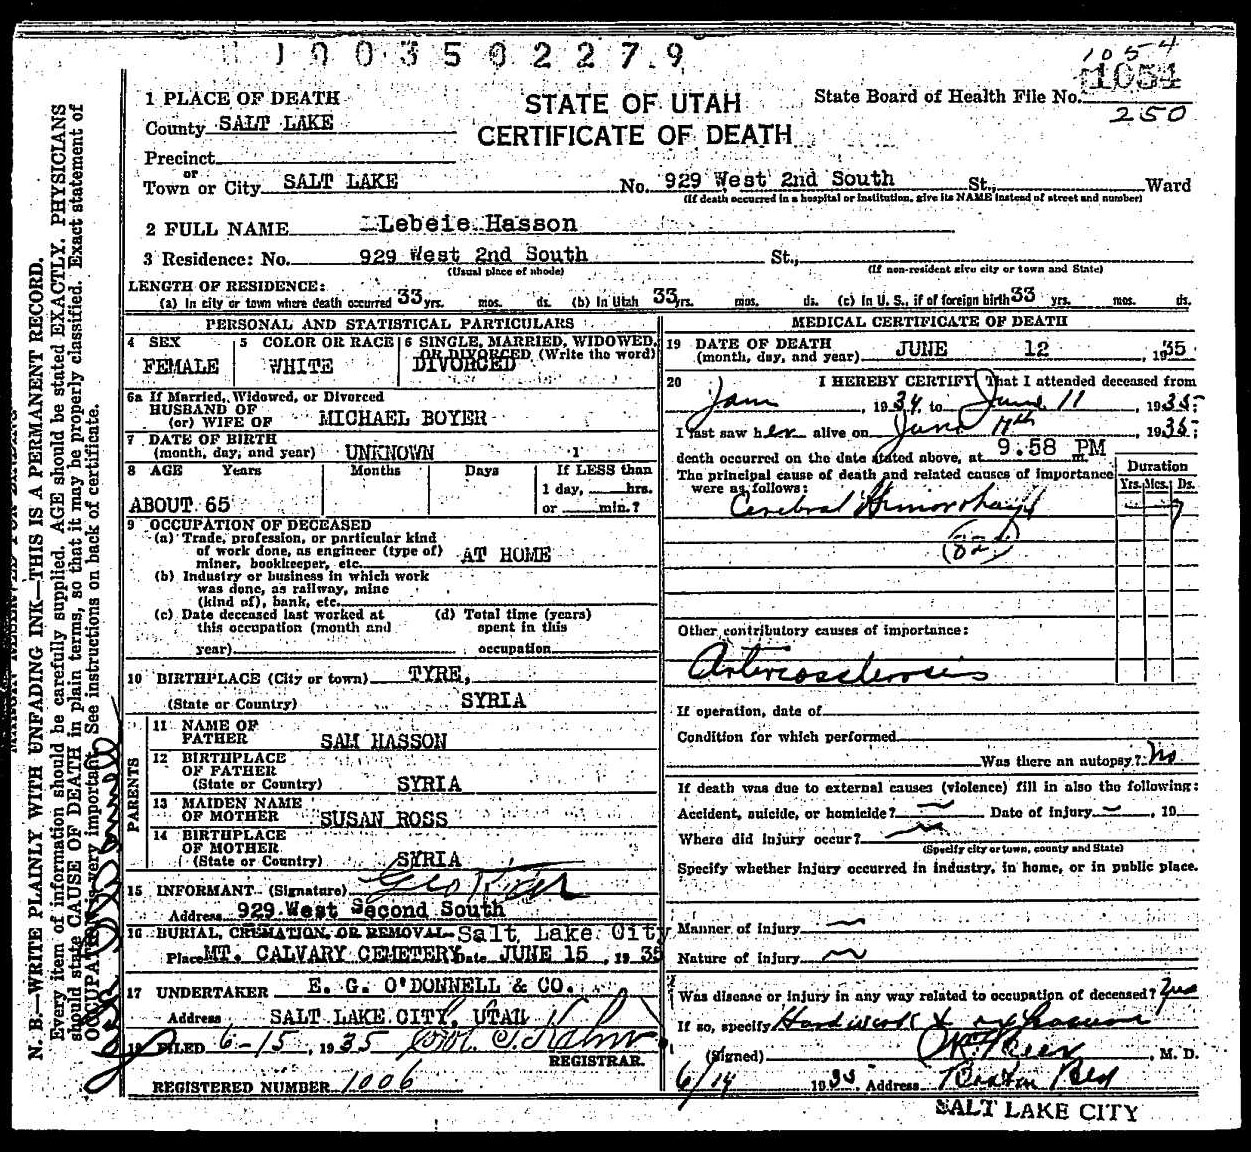 1003502279
1054
1054
250
STATE OF UTAH
CERTIFICATE OF DEATH
State Board of Health File No.
1 PLACE OF DEATH
County SALT LAKE
Precinct
or
Town or City SALT LAKE No. 929 West 2nd South St., Ward
(If death occurred in a hospital or institution, give its NAME instead of street and number)
2 FULL NAME Lebeie Hasson
3 Residence: No. 929 West 2nd South St.,
(Usual place of abode) (If non-resident give city or town and State)
LENGTH OF RESIDENCE:
(a) In city or town where death occurred 33 yrs. mos. ds. (b) In Utah 33 yrs. mos. ds. (c) In U. S., if of foreign birth 33 yrs. mos. ds.
PERSONAL AND STATISTICAL PARTICULARS
4 SEX
FEMALE
5 COLOR OR RACE
WHITE
6 SINGLE, MARRIED, WIDOWED,
OR DIVORCED (Write the word)
DIVORCED
6a If Married, Widowed, or Divorced
HUSBAND OF
(or) WIFE OF MICHAEL BOYER
7 DATE OF BIRTH
(month, day, and year) UNKNOWN
8 AGE Years Months Days If LESS than
1 day, hrs.
ABOUT 65 or min.?
9 OCCUPATION OF DECEASED
(a) Trade, profession, or particular kind
of work done, as engineer (type of)
miner, bookkeeper, etc. AT HOME
(b) Industry or business in which work
was done, as railway, mine
(kind of), bank, etc.
(c) Date deceased last worked at
this occupation (month and
year)
(d) Total time (years)
spent in this
occupation
10 BIRTHPLACE (City or town) TYRE,
(State or Country) SYRIA
PARENTS
11 NAME OF
FATHER SAM HASSON
12 BIRTHPLACE
OF FATHER
(State or Country) SYRIA
13 MAIDEN NAME
OF MOTHER SUSAN ROSS
14 BIRTHPLACE
OF MOTHER
(State or Country) SYRIA
15 INFORMANT (Signature) Geo
Address 929 West Second South
16 BURIAL, CREMATION, OR REMOVAL Salt Lake City
Place MT. CALVARY CEMETERY Date JUNE 15, 1935
17 UNDERTAKER E. G. O'DONNELL & CO.
Address SALT LAKE CITY, UTAH
18 FILED 6-15, 1935
REGISTRAR.
REGISTERED NUMBER 1006
MEDICAL CERTIFICATE OF DEATH
19 DATE OF DEATH
(month, day, and year) JUNE 12, 1935
20 I HEREBY CERTIFY, That I attended deceased from
Jan, 1934, to June 11, 1935;
I last saw her alive on June 11th, 1935;
death occurred on the date stated above, at 9:58 PM m.
The principal cause of death and related causes of importance
were as follows:
Duration
Yrs. Mos. Ds.
Cerebral Hemorrhage 7
(82)
Other contributory causes of importance:
Arteriosclerosis
If operation, date of
Condition for which performed
Was there an autopsy? No
If death was due to external causes (violence) fill in also the following:
Accident, suicide, or homicide? Date of injury, 19
Where did injury occur?
(Specify city or town, county and State)
Specify whether injury occurred in industry, in home, or in public place.
Manner of Injury
Nature of Injury
Was disease or injury in any way related to occupation of deceased? Yes
If so, specify Hard work & exposure
(Signed) , M. D.
6/14 1935 Address Boston Bldg
SALT LAKE CITY
N. B.—WRITE PLAINLY WITH UNFADING INK—THIS IS A PERMANENT RECORD.
Every item of information should be carefully supplied. AGE should be stated EXACTLY. PHYSICIANS
should state CAUSE OF DEATH in plain terms, so that it may be properly classified. Exact statement of
OCCUPATION very important. See instructions on back of certificate.